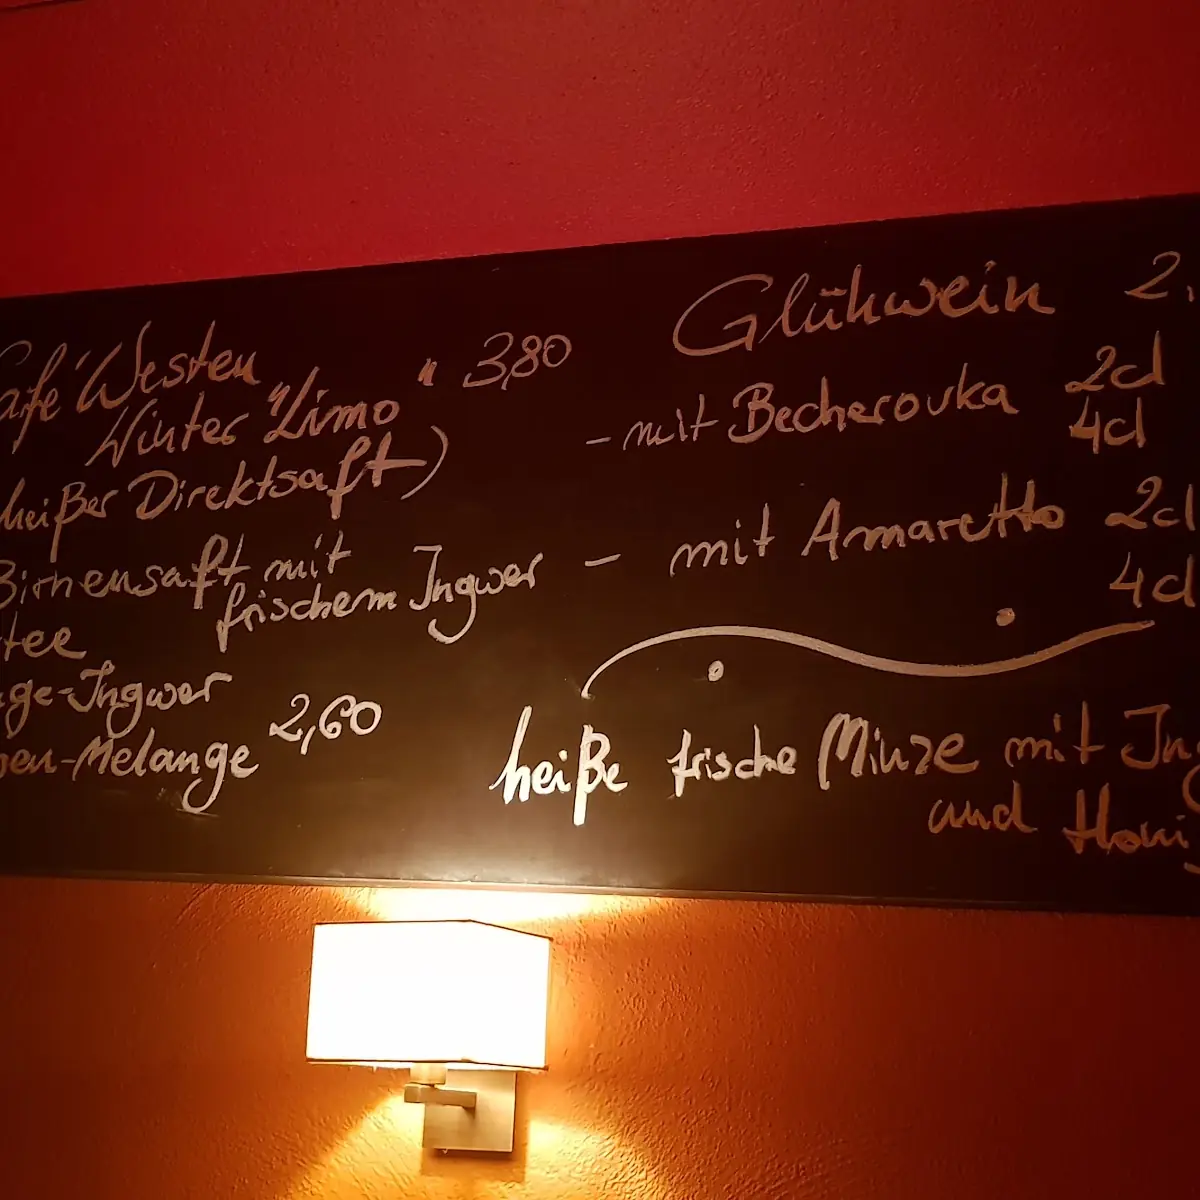 Café Westen
Winter "Limo" 3,80
heißer Direktsaft)
Birnensaft mit
frischem Ingwer
tee
ge-Ingwer
en-Melange 2,60
Glühwein 2,
- mit Becherovka 2cl
4cl
- mit Amaretto 2cl
4cl
heiße frische Minze mit Ing
und Honig